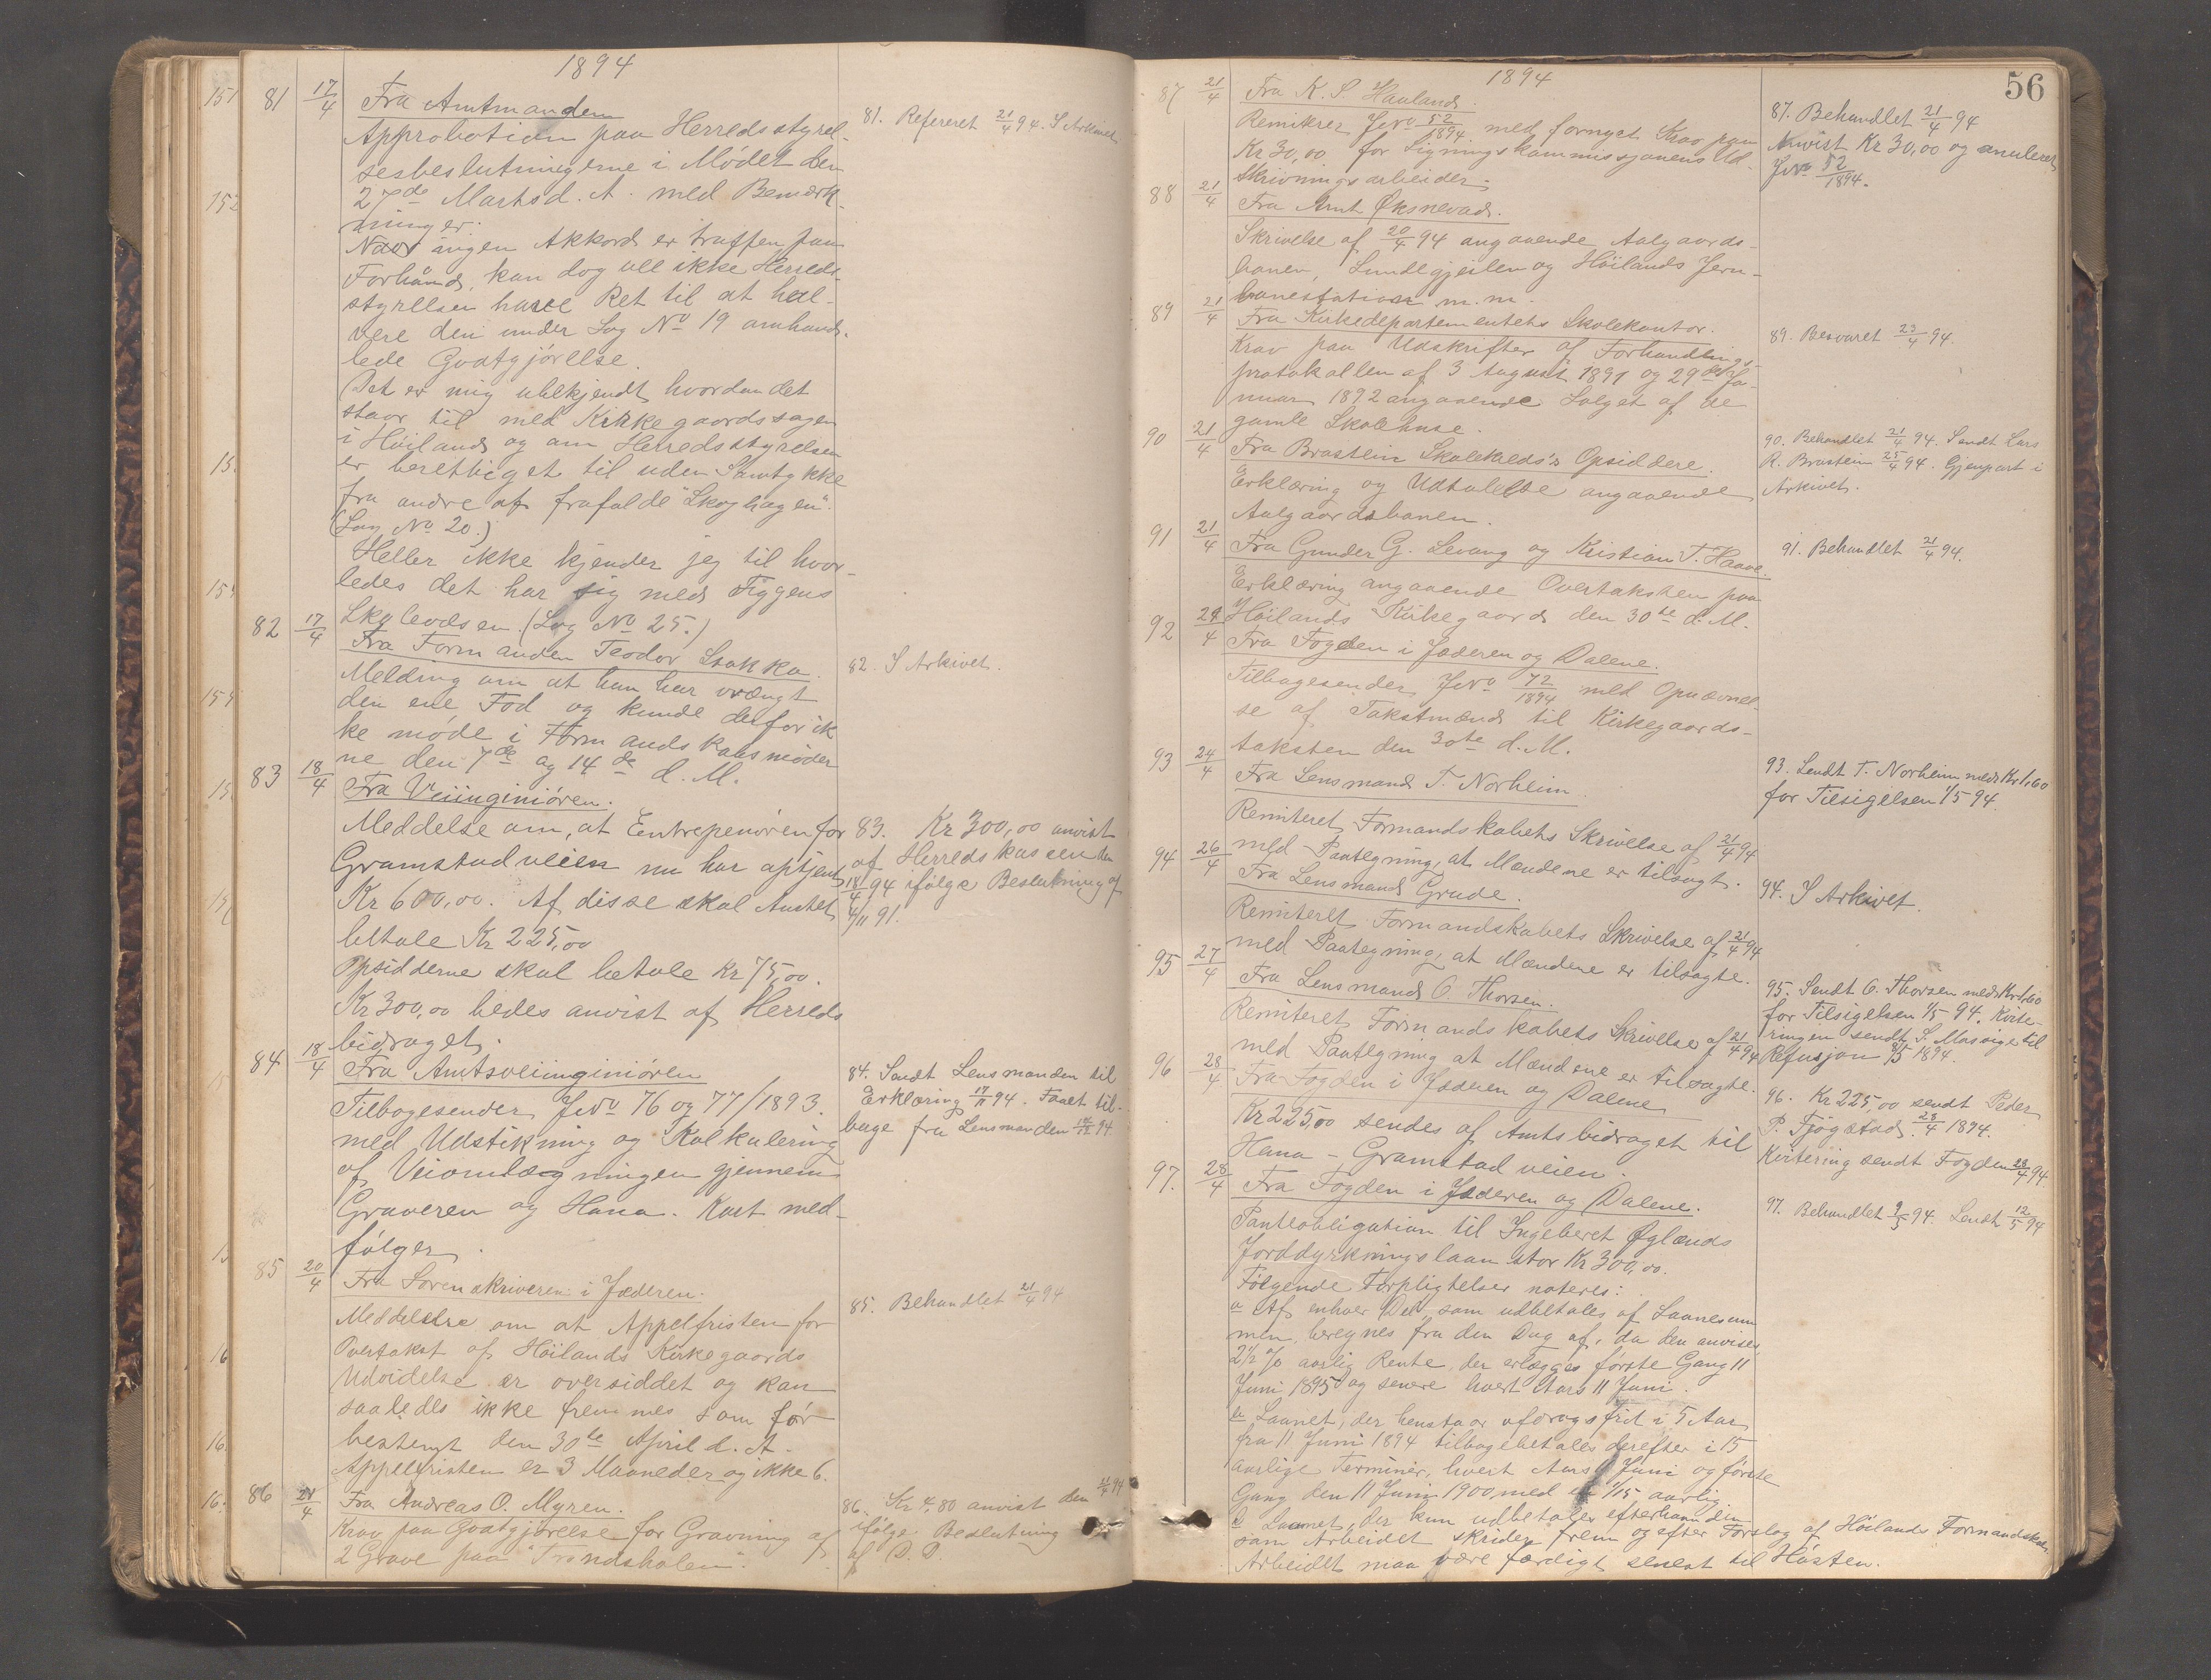 1894
81 17/4 Fra Amtmanden
Approbation paa Herredsstyrel-
sesbeslutningerne i Mødet den
27de Marts d. A. med Bemærk-
ninger:
Naar ingen Akkord er truffen paa
Forhånd, kan dog vel ikke Herreds-
styrelsen have Ret til at hal-
vere den under Sag No 19 omhand-
lede Godtgjørelse.
Det er mig ubekjendt hvordan det
staar til med Kirkegaardssagen
i Høiland og om Herredsstyrelsen
er berettiget til uden Samtykke
fra andre at frafalde "Skoghagen".
(Sag No 20.)
Heller ikke kjender jeg til hvor-
ledes det har sig med Figgens
Skulevdsen. (Sag No 25.)
81. Refereret 21/4 94. I Arkivet
82 17/4 Fra Formanden Teodor Stokka.
Melding om at han har vrængt
den ene Fod og kunde derfor ik
ke møde i Formandskabsmøder
ne den 7de og 14de d. M.
82. I Arkivet.
83 18/4 Fra Veiinginiøren.
Meddelse om, at Entrepenøren for
Gramstadveien nu har optjent
Kr 600,00. Af disse skal Amtet
betale Kr 225,00
Opsidderne skal betale Kr 75,00.
Kr 300,00 bedes anvist af Herreds
bidraget.
83. Kr 300,00 anvist
af Herredskassen den
18/4 94 ifølge Beslutning af
4/11 91.
84 18/4 Fra Amtsveiinginiøren
Tilbagesender Jvno 76 og 77/1893.
med Udstikning og Kalkulering
af Veiomlægningen gjennem
Graveren og Hana. Kart med-
følger.
84. Sendt Lensmanden til
Erklæring 17/11 94. Faaet til-
bage fra Lensmanden 94
85 20/4 Fra Sorenskriveren i Jæderen.
Meddelelse om at Appelfristen for
Overtakst af Høilands Kirkegaards
Udvidelse er oversiddet og kan
saaledes ikke fremmes som før
bestemt den 30te April d. A.
Appelfristen er 3 Maaneder og ikke 6.
85. Behandlet 21/4 94
86 21/4 Fra Andreas O. Myren.
Krav paa Godtgjørelse for Gravning af
2 Grave paa "Trondsholen".
86. Kr 4,80 anvist den 21/4 94
ifølge Beslutning
af D. D.
56
1894
87 21/4 Fra K. S. Haaland.
Remitrer Jvno 52/1894 med fornyet Krav paa
Kr 30,00 for Ligningskommissjonens Ud-
skrivningsarbeider.
87. Behandlet 21/4 94
Anvist Kr 30,00 og anuleret
Jvno 52/1894.
88 21/4 Fra Amt Øksnevad.
Skrivelse af 20/4 94 angaaende Aalgaards-
banen, Lundegjeilen og Høilands Jern-
banestation m.m.
89 21/4 Fra Kirkedepartementets Skolekontor.
Krav paa Udskrifter af Forhandlings-
protokollen af 3 August 1891 og 29de Ja-
nuar 1892 angaaende Salget af de
gamle Skolehuse.
89. Besvaret 23/4 94.
90 21/4 Fra Brastein Skolekreds's Opsiddere.
Erklæring og Udtalelse angaaende
Aalgaardsbanen.
90. Behandlet 21/4 94. Sendt Lars
R. Brastein 25/4 94. Gjenpart i
Arkivet.
91 21/4 Fra Gunder G. Levang og Kristian T. Haave.
Erklæring angaaende Overtaksten paa
Høilands Kirkegaard den 30te d. M.
91. Behandlet 21/4 94.
92 24/4 Fra Fogden i Jæderen og Dalene.
Tilbagesender Jvno 72/1894 med Opnævnel-
se af Takstmænd til Kirkegaards-
taksten den 30te d. M.
93 24/4 Fra Lensmand T. Norheim.
Remiteret Formandskabets Skrivelse af 21/4 94
med Paategning, at Mændene er tilsagt.
93. Sendt T. Norheim med Kr 1,60
for Tilsigelsen 1/5 94.
94 26/4 Fra Lensmand Grude.
Remiteret Formandskabets Skrivelse af 21/4 94
med Paategning, at Mændene er tilsagte.
94. I Arkivet.
95 27/4 Fra Lensmand O. Thorsen.
Remiteret Formandskabets Skrivelse af 21/4 94
med Paategning at Mændene er tilsagte.
95. Sendt O. Thorsen med Kr 1,60
for Tilsigelsen 1/5 94. Kvite-
ringen sendt S. Masvige til
Refusjon 1894.
96 28/4 Fra Fogden i Jæderen og Dalene
Kr 225,00 sendes af Amtsbidraget til
Hana-Gramstadveien.
96. Kr 225,00 sendt Peder
P. Fjogstad. 28/4 1894.
Kvitering sendt Fogden 28/4 94
97. 28/4 Fra Fogden i Jæderen og Dalene.
Panteobligation til Ingeberet Øglænds
Jorddyrkningslaan stor Kr 300,00.
Følgende Forpligtelser noteres:
a Af enhver Del, som udbetales af Laanesum
men, beregnes fra den Dag af, da den anvises,
2 1/2 % aarlig Rente, der erlægges første Gang 11
Juni 1895 og senere hvert Aars 11 Juni.
b Laanet, der henstaar afdragsfrit i 5 Aar
fra 11 Juni 1894 tilbagebetales derefter i 15
aarlige Terminer, hvert Aars 11 Juni og første
Gang den 11 Juni 1900 med 1/15 aarlig.
c Laanet, der kun udbetales efterhaanden
som Arbeidet skrider frem og efter Forslag af Høilands Formandskab.
Arbeidet maa være færdigt senest til Høsten.
97. Behandlet 9/5 94. Sendt 12/5 94